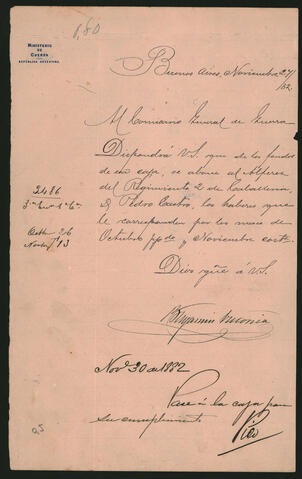 1,80
MINISTERIO
DE
GUERRA
REPÚBLICA ARGENTINA
Buenos Aires, Noviembre 27/
82.
Al Comisario General de Guerra
Dispondrá V.S. que de los fondos
de esa caja, se abone al Alferez
del Regimiento 2 de Caballeria,
D. Pedro Castro, los haberes que
le corresponden por los meses de
Octubre ppdo y Noviembre corte.
Dios gue á V.S.
2486
Octbe 26
Novbe 13
Benjamin Victorica
Nove 30 de 1882
Pase á la caja para
su cumplimiento